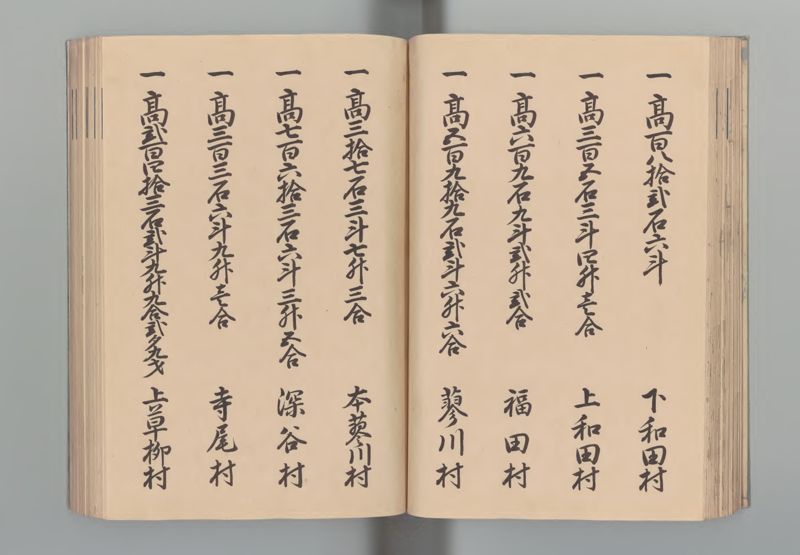 一 高百八拾弐石六斗 下和田村
一 高三百五石三斗四升壱合 上和田村
一 高六百九石九斗弐升弐合 福田村
一 高五百九拾九石弐斗六升六合 蓼川村
一 高三拾七石三斗七升三合 本蓼川村
一 高七百六拾三石六斗三升五合 深谷村
一 高三百三石六斗九升壱合 寺尾村
一 高弐百四拾三石弐斗九升九合弐夕九才 上草柳村